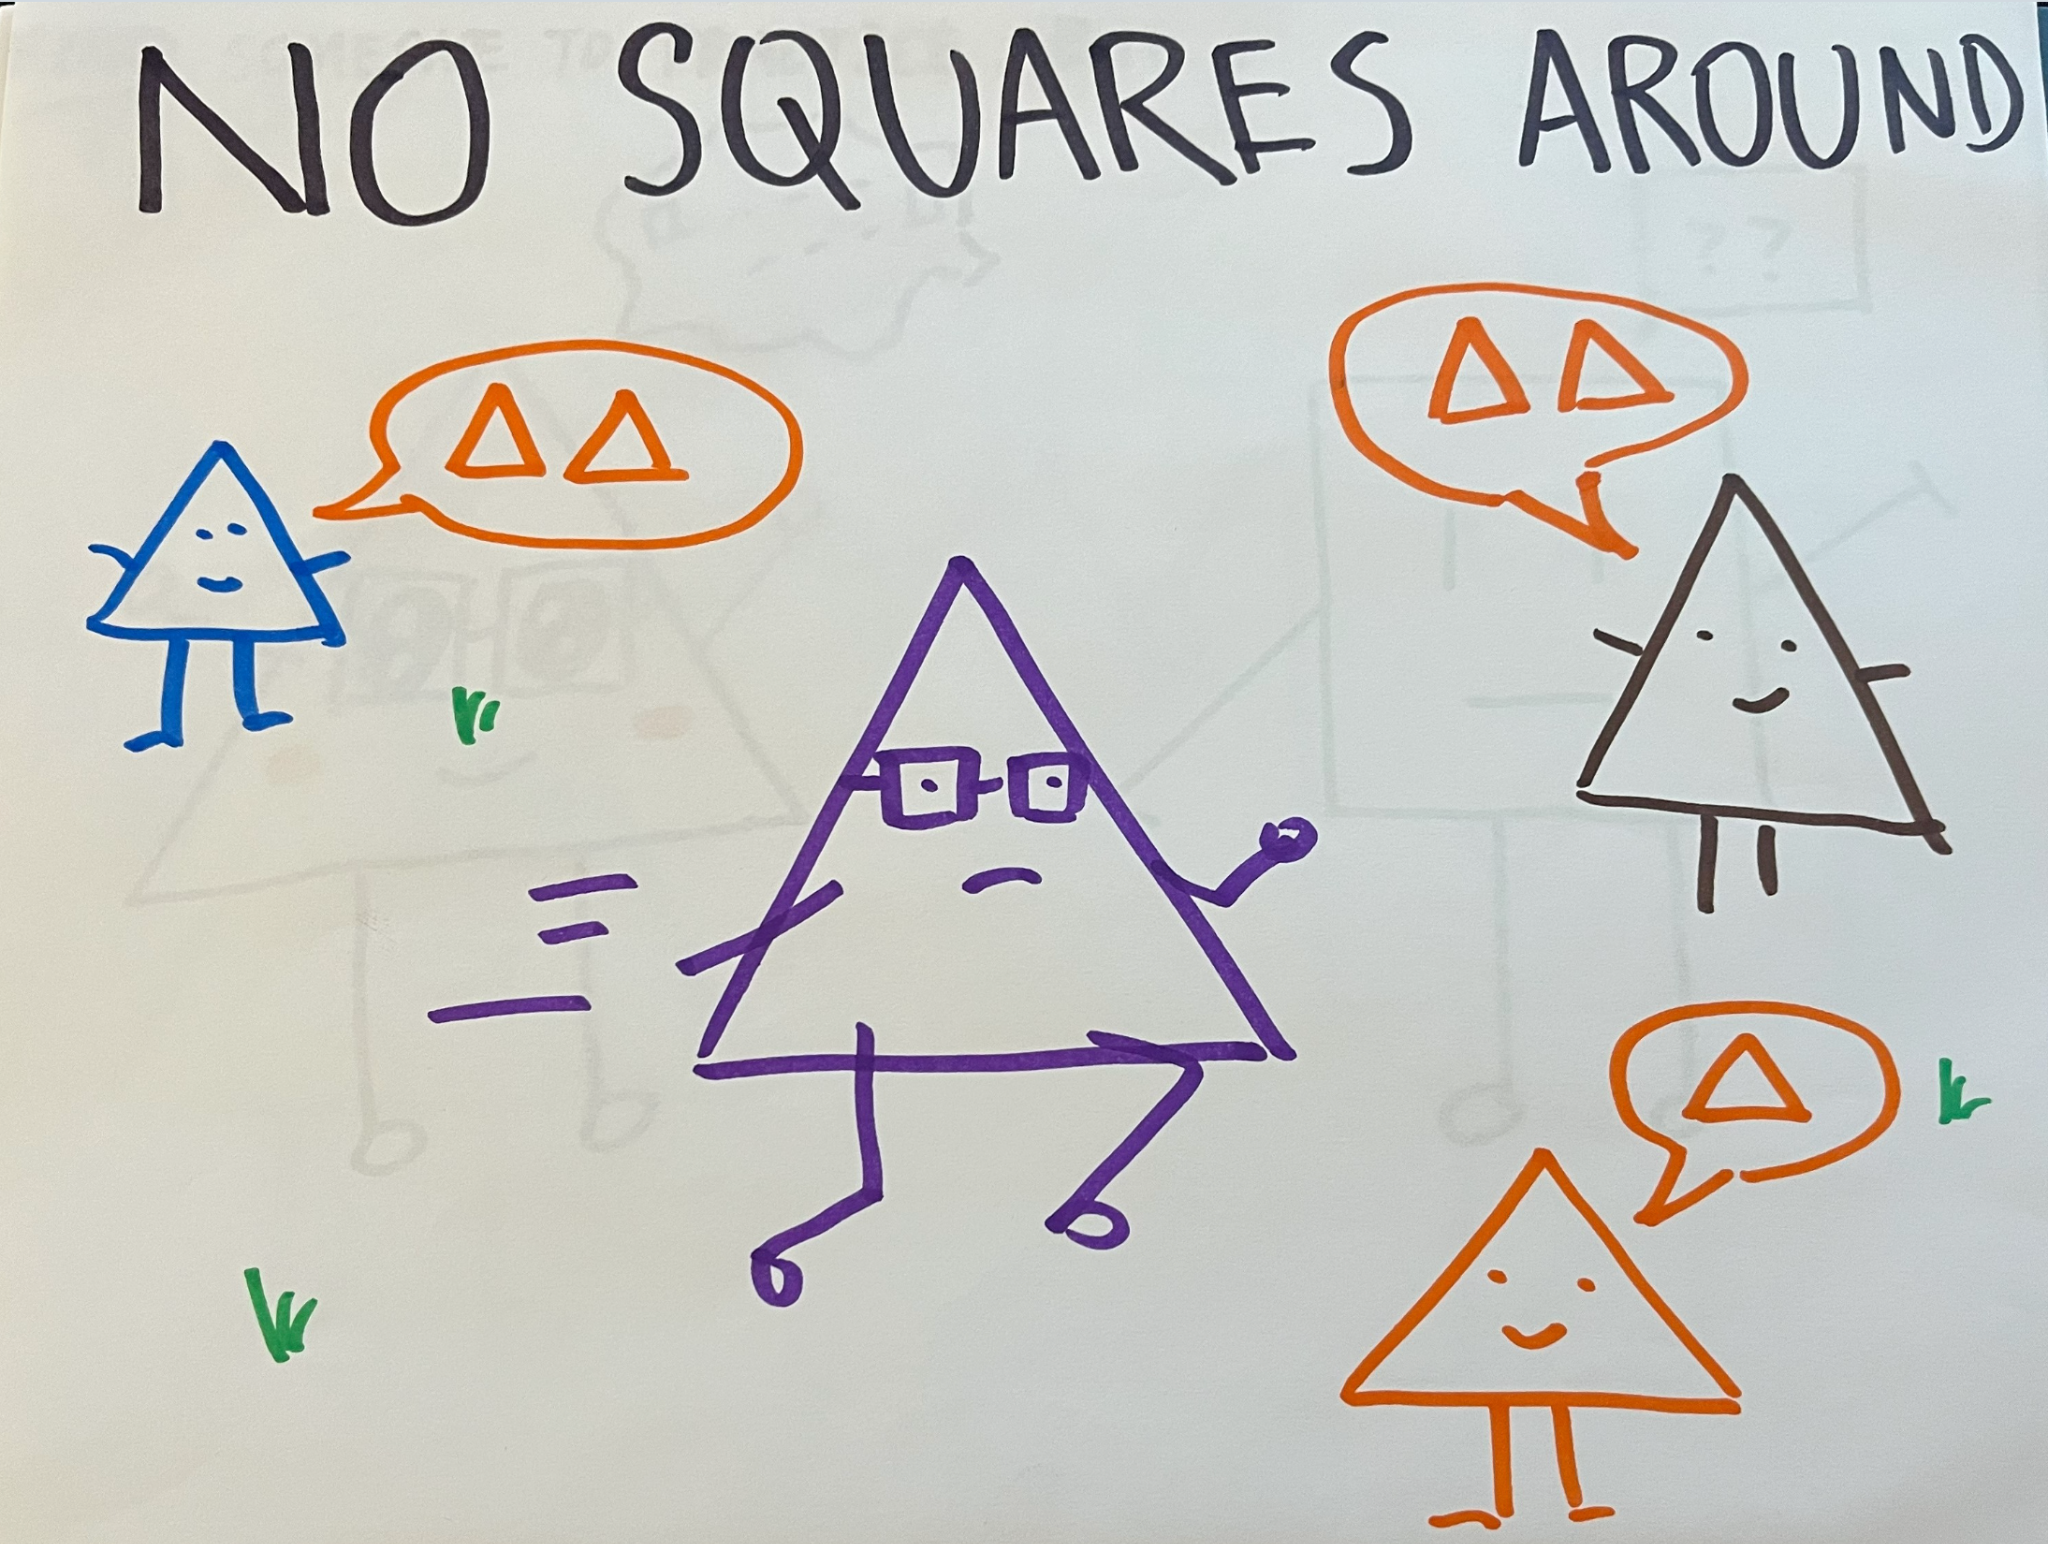 NO SQUARES AROUND